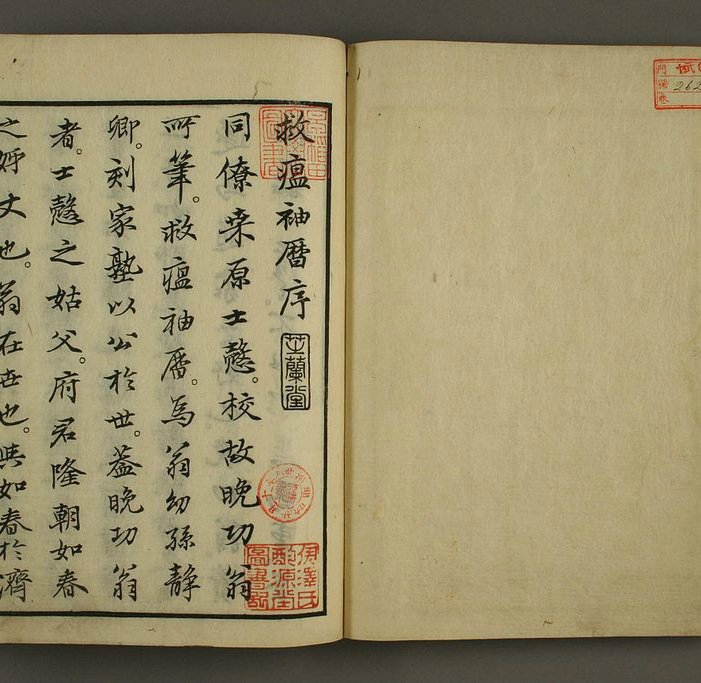 救瘟袖暦序 芷蘭堂
同僚桒原士愨。校故晚功翁
所筆。救瘟袖暦。為翁幼孫静
卿。刻家塾以公於世。蓋晚功翁
者。士愨之姑父。府君隆朝如春
之姉丈也。翁在世也。與如春於濟
伊澤氏
酌源堂
圖書記
262